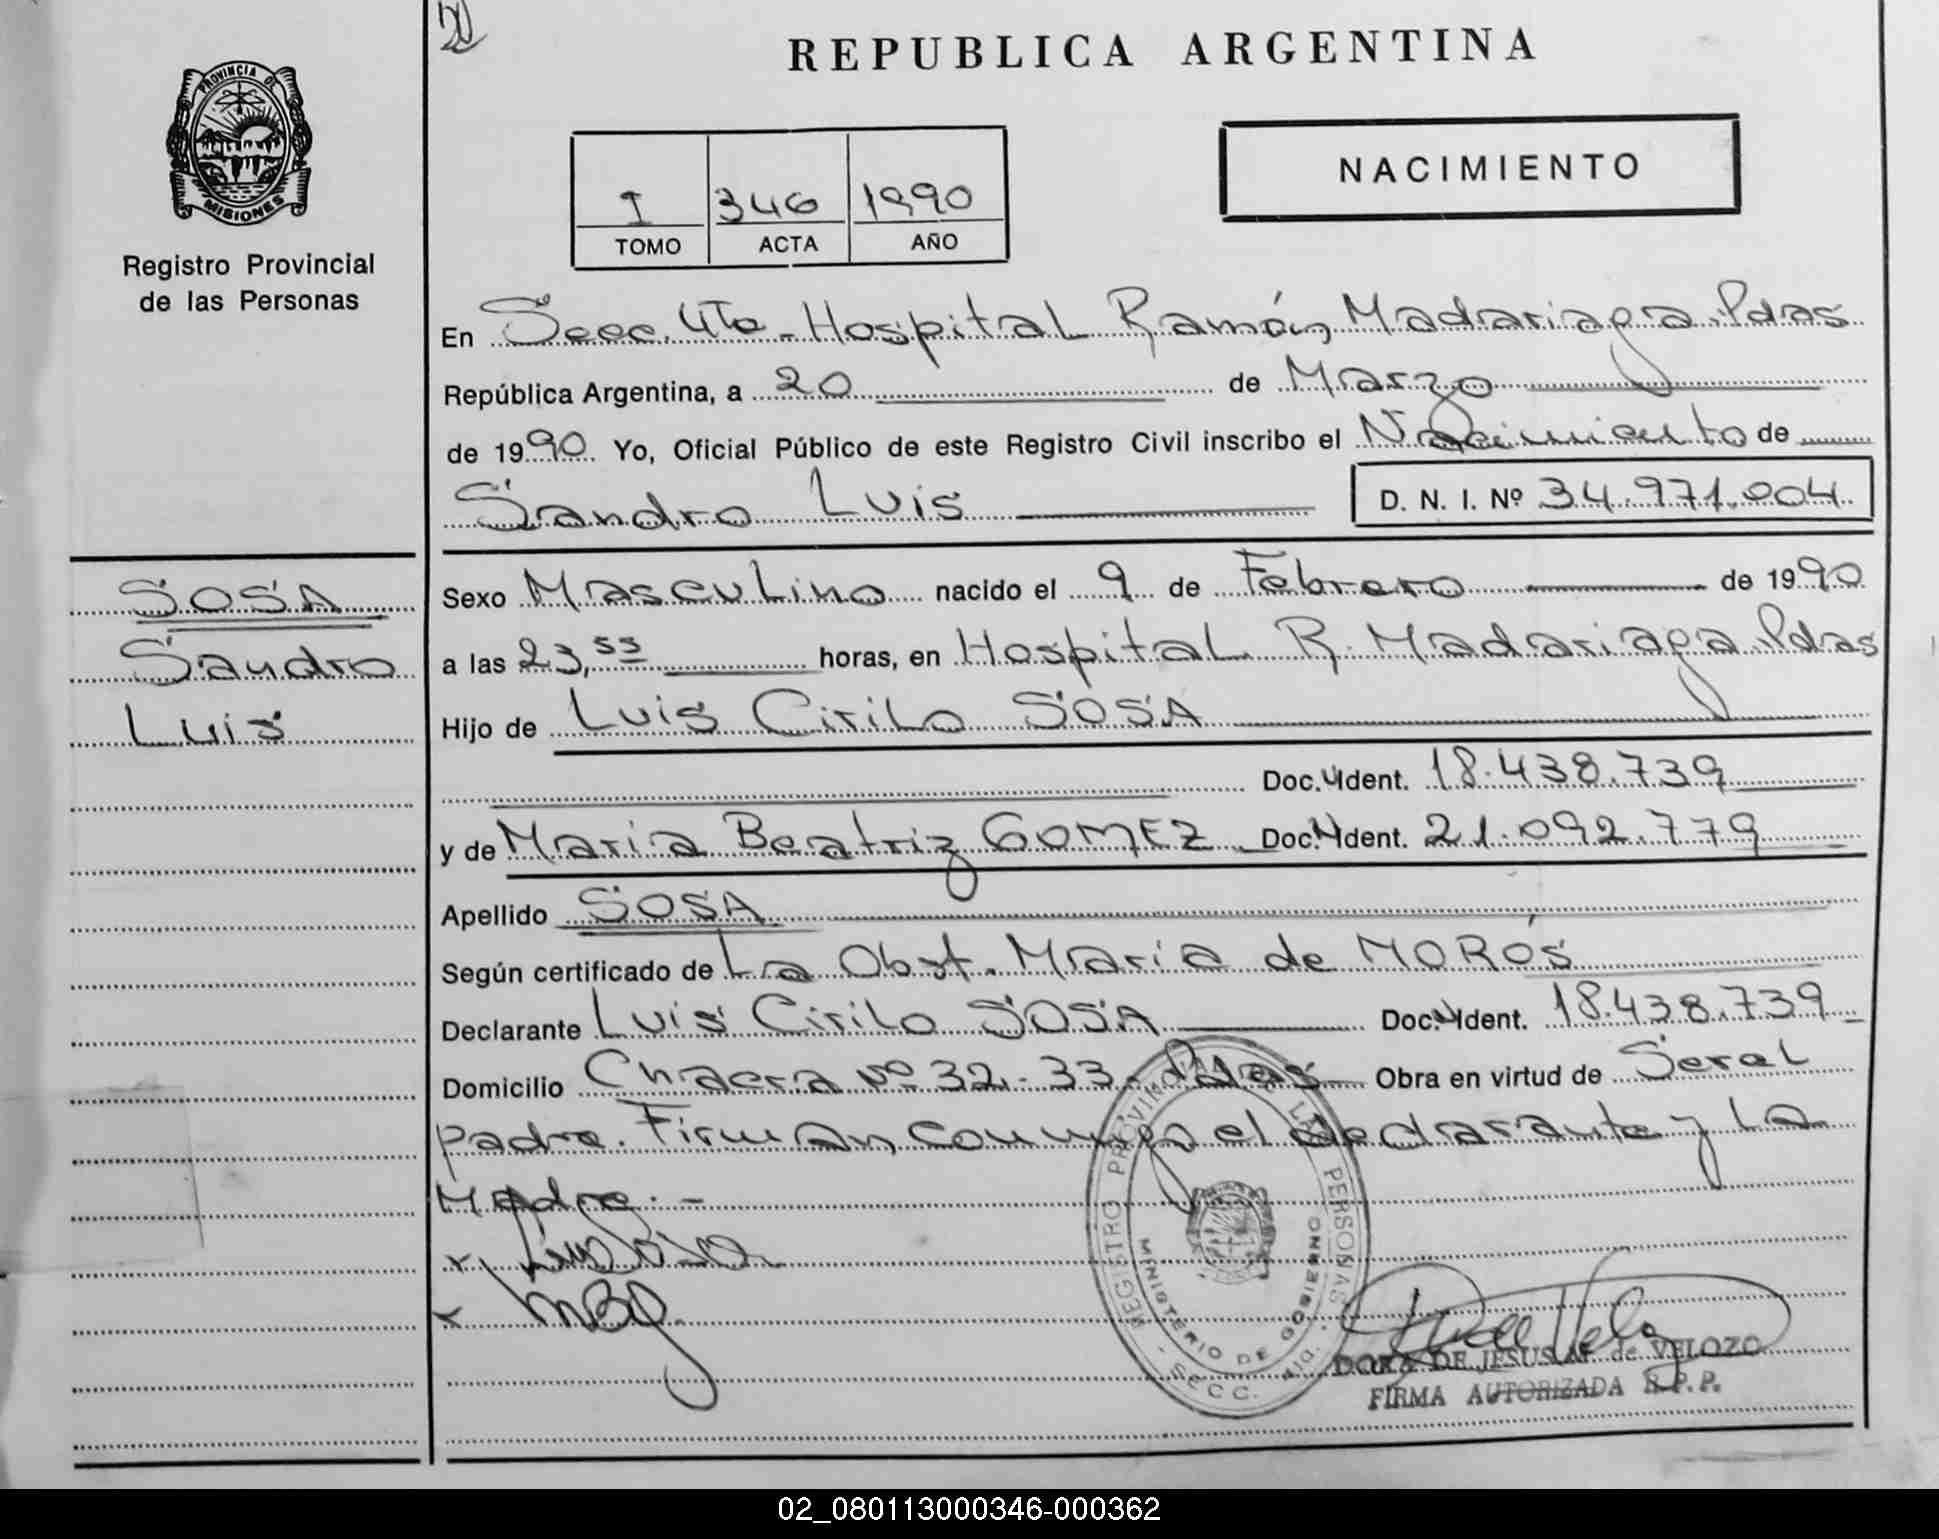 REPUBLICA ARGENTINA
PROVINCIA DE
MISIONES
Registro Provincial
de las Personas
I 346 1990
TOMO ACTA AÑO
NACIMIENTO
En Secc. 4Ta - Hospital Ramón Madariaga. Pdas
República Argentina, a 20 de Marzo
de 1990 Yo, Oficial Público de este Registro Civil inscribo el Nacimiento de
Sandro Luis D. N. I. Nº 34.971.004
SOSA
Sandro
Luis
Sexo Masculino nacido el 9 de Febrero de 1990
a las 23,55 horas, en Hospital R. Madariaga. Pdas
Hijo de Luis Cirilo SOSA
Doc. Ident. 18.438.739
y de Maria Beatriz GOMEZ Doc. Ident. 21.092.779
Apellido SOSA
Según certificado de La Obst. María de MORÓS
Declarante Luis Cirilo SOSA Doc. Ident. 18.438.739
Domicilio Chacra Nº 32-33 - Pdas Obra en virtud de Ser el
padre. Firman conmigo el declarante y la
Madre. -
x Luis Sosa
x MBG
REGISTRO PROVINCIAL DE LAS PERSONAS
MINISTERIO DE GOBIERNO
SECC. 4ta.
DORA DE JESUS M. de VELOZO
FIRMA AUTORIZADA R.P.P.
02_080113000346-000362